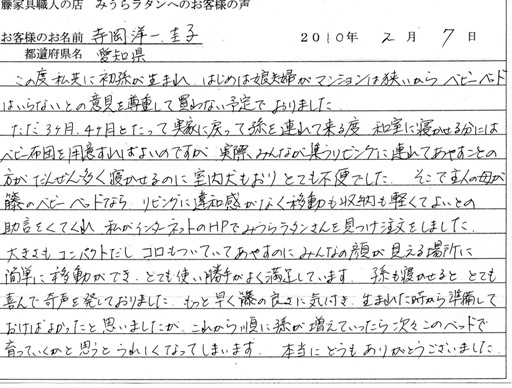 藤家具職人の店 みうらラタンへのお客様の声
お客様のお名前 寺岡洋一、圭子 2010年 2月 7日
都道府県名 愛知県
この度私共に初孫が生まれ、はじめは娘夫婦がマンションは狭いから ベビーベッド
はいらないとの意見を尊重して買わない予定でおりました。
ただ3ヶ月、4ヶ月とたって実家に戻って孫を連れて来る度 和室に寝かせる分には
ベビー布団を用意すればよいのですが 実際みんなが集うリビングに連れてあやすことの
方がだんぜん多く寝かせるのに室内犬もおりとても不便でした。 そこで主人の母が
籐のベビーベッドなら リビングに違和感がなく移動も収納も軽くてよいとの
助言をくてくれ 私がインターネットのHPでみうらラタンさんを見つけ注文をしました。
大きさも コンパクトだし コロもついていてあやすのにみんなの顔が見える場所に
簡単に移動ができ、とても使い勝手がよく満足しています。 孫も寝かせると とても
喜んで奇声を発しておりました。もっと早く籐の良さに気付き、生まれた時から準備して
おけばよかったと思いましたが、これから順に孫が増えていったら次々このベッドで
育っていくかと思うとうれしくなってしまいます。 本当にどうもありがとうございました。